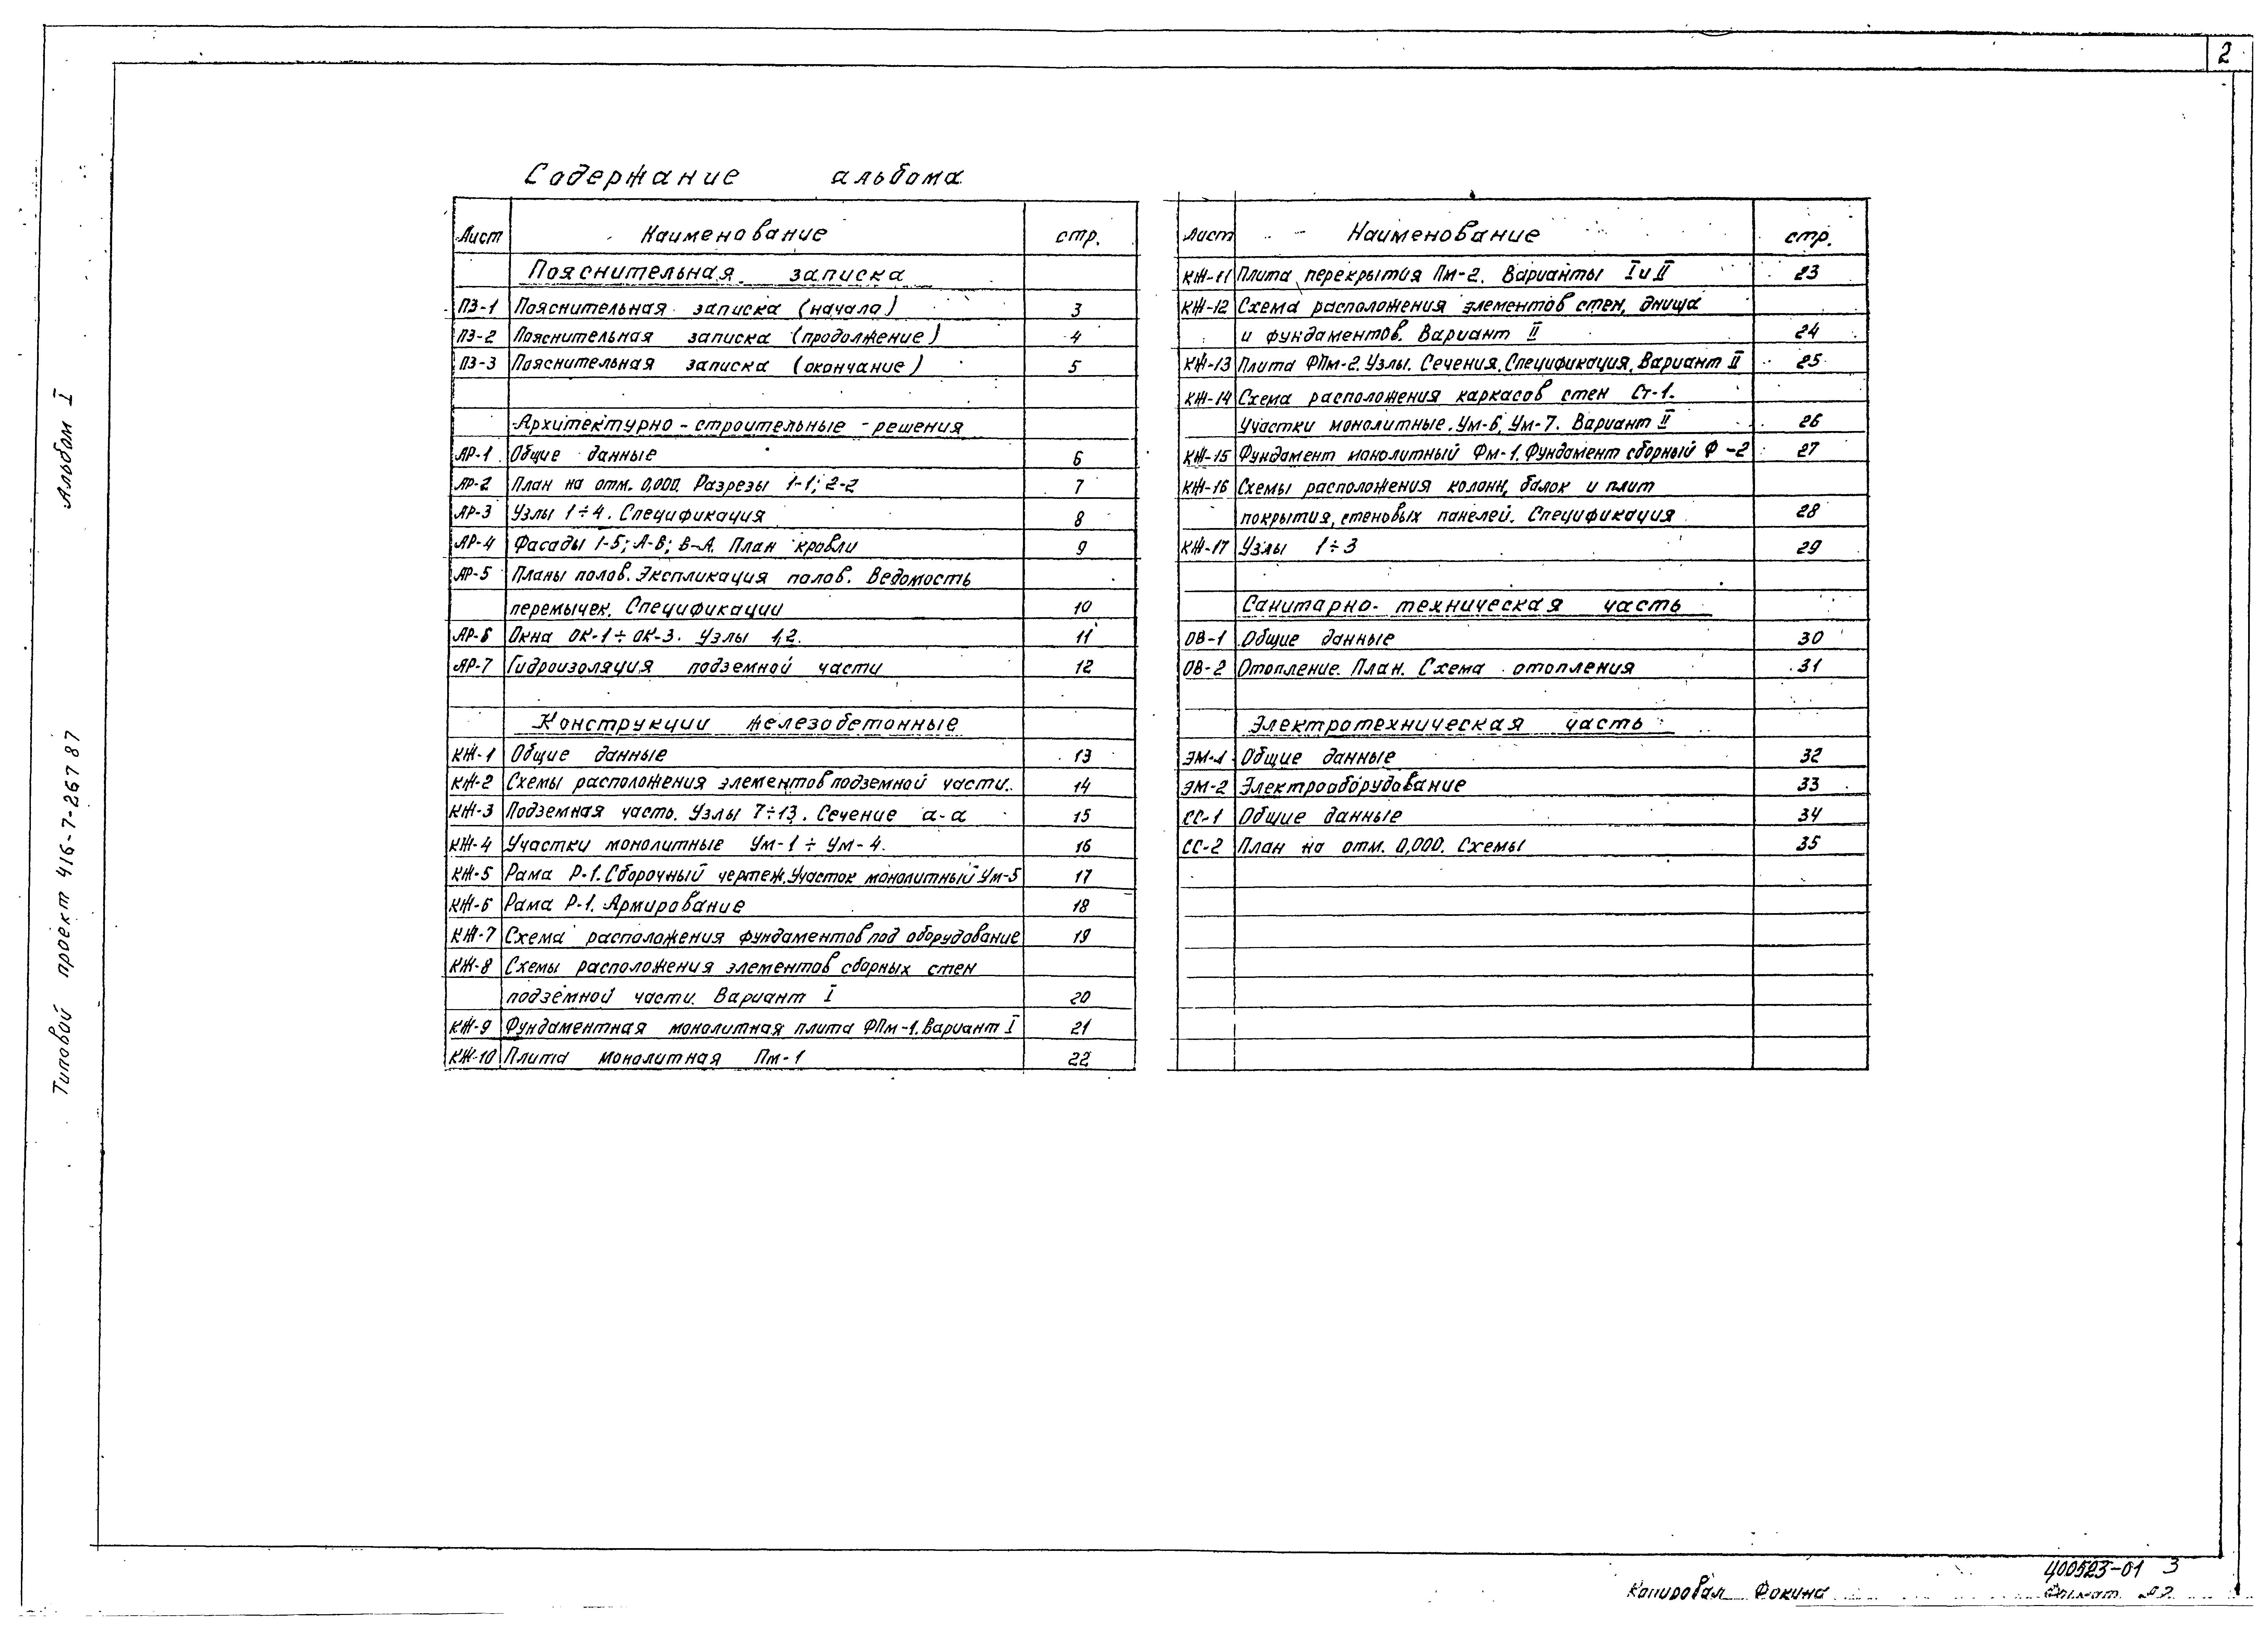 2
Содержание альбома
Лист Наименование стр.
Пояснительная записка
ПЗ-1 Пояснительная записка (начало) 3
ПЗ-2 Пояснительная записка (продолжение) 4
ПЗ-3 Пояснительная записка (окончание) 5
Архитектурно-строительные решения
АР-1 Общие данные 6
АР-2 План на отм. 0,000. Разрезы 1-1; 2-2 7
АР-3 Узлы 1÷4. Спецификация 8
АР-4 Фасады 1-5; А-В; В-А. План кровли 9
АР-5 Планы полов. Экспликация полов. Ведомость
перемычек. Спецификации 10
АР-6 Окна ОК-1÷ОК-3. Узлы 1,2. 11
АР-7 Гидроизоляция подземной части 12
Конструкции железобетонные
КЖ-1 Общие данные 13
КЖ-2 Схемы расположения элементов подземной части. 14
КЖ-3 Подземная часть. Узлы 7÷13. Сечение а-а 15
КЖ-4 Участки монолитные Ум-1 ÷ Ум-4. 16
КЖ-5 Рама Р-1. Сборочный чертеж. Участок монолитный Ум-5 17
КЖ-6 Рама Р-1. Армирование 18
КЖ-7 Схема расположения фундаментов под оборудование 19
КЖ-8 Схемы расположения элементов сборных стен
подземной части. Вариант I 20
КЖ-9 Фундаментная монолитная плита ФПм-1. Вариант I 21
КЖ-10 Плита монолитная Пм-1 22
Лист Наименование стр.
КЖ-11 Плита перекрытия Пм-2. Варианты I и II 23
КЖ-12 Схема расположения элементов стен, днища
и фундаментов. Вариант II 24
КЖ-13 Плита ФПм-2. Узлы. Сечения. Спецификация. Вариант II 25
КЖ-14 Схема расположения каркасов стен Ст-1.
Участки монолитные. Ум-6, Ум-7. Вариант II 26
КЖ-15 Фундамент монолитный Фм-1. Фундамент сборный Ф-2 27
КЖ-16 Схемы расположения колонн, балок и плит
покрытия, стеновых панелей. Спецификация 28
КЖ-17 Узлы 1÷3 29
Санитарно-техническая часть
ОВ-1 Общие данные 30
ОВ-2 Отопление. План. Схема отопления 31
Электротехническая часть
ЭМ-1 Общие данные 32
ЭМ-2 Электрооборудование 33
СС-1 Общие данные 34
СС-2 План на отм. 0,000. Схемы 35
Альбом I
Типовой проект 416-7-267 87
400523-01 3
Копировал Фокина Формат